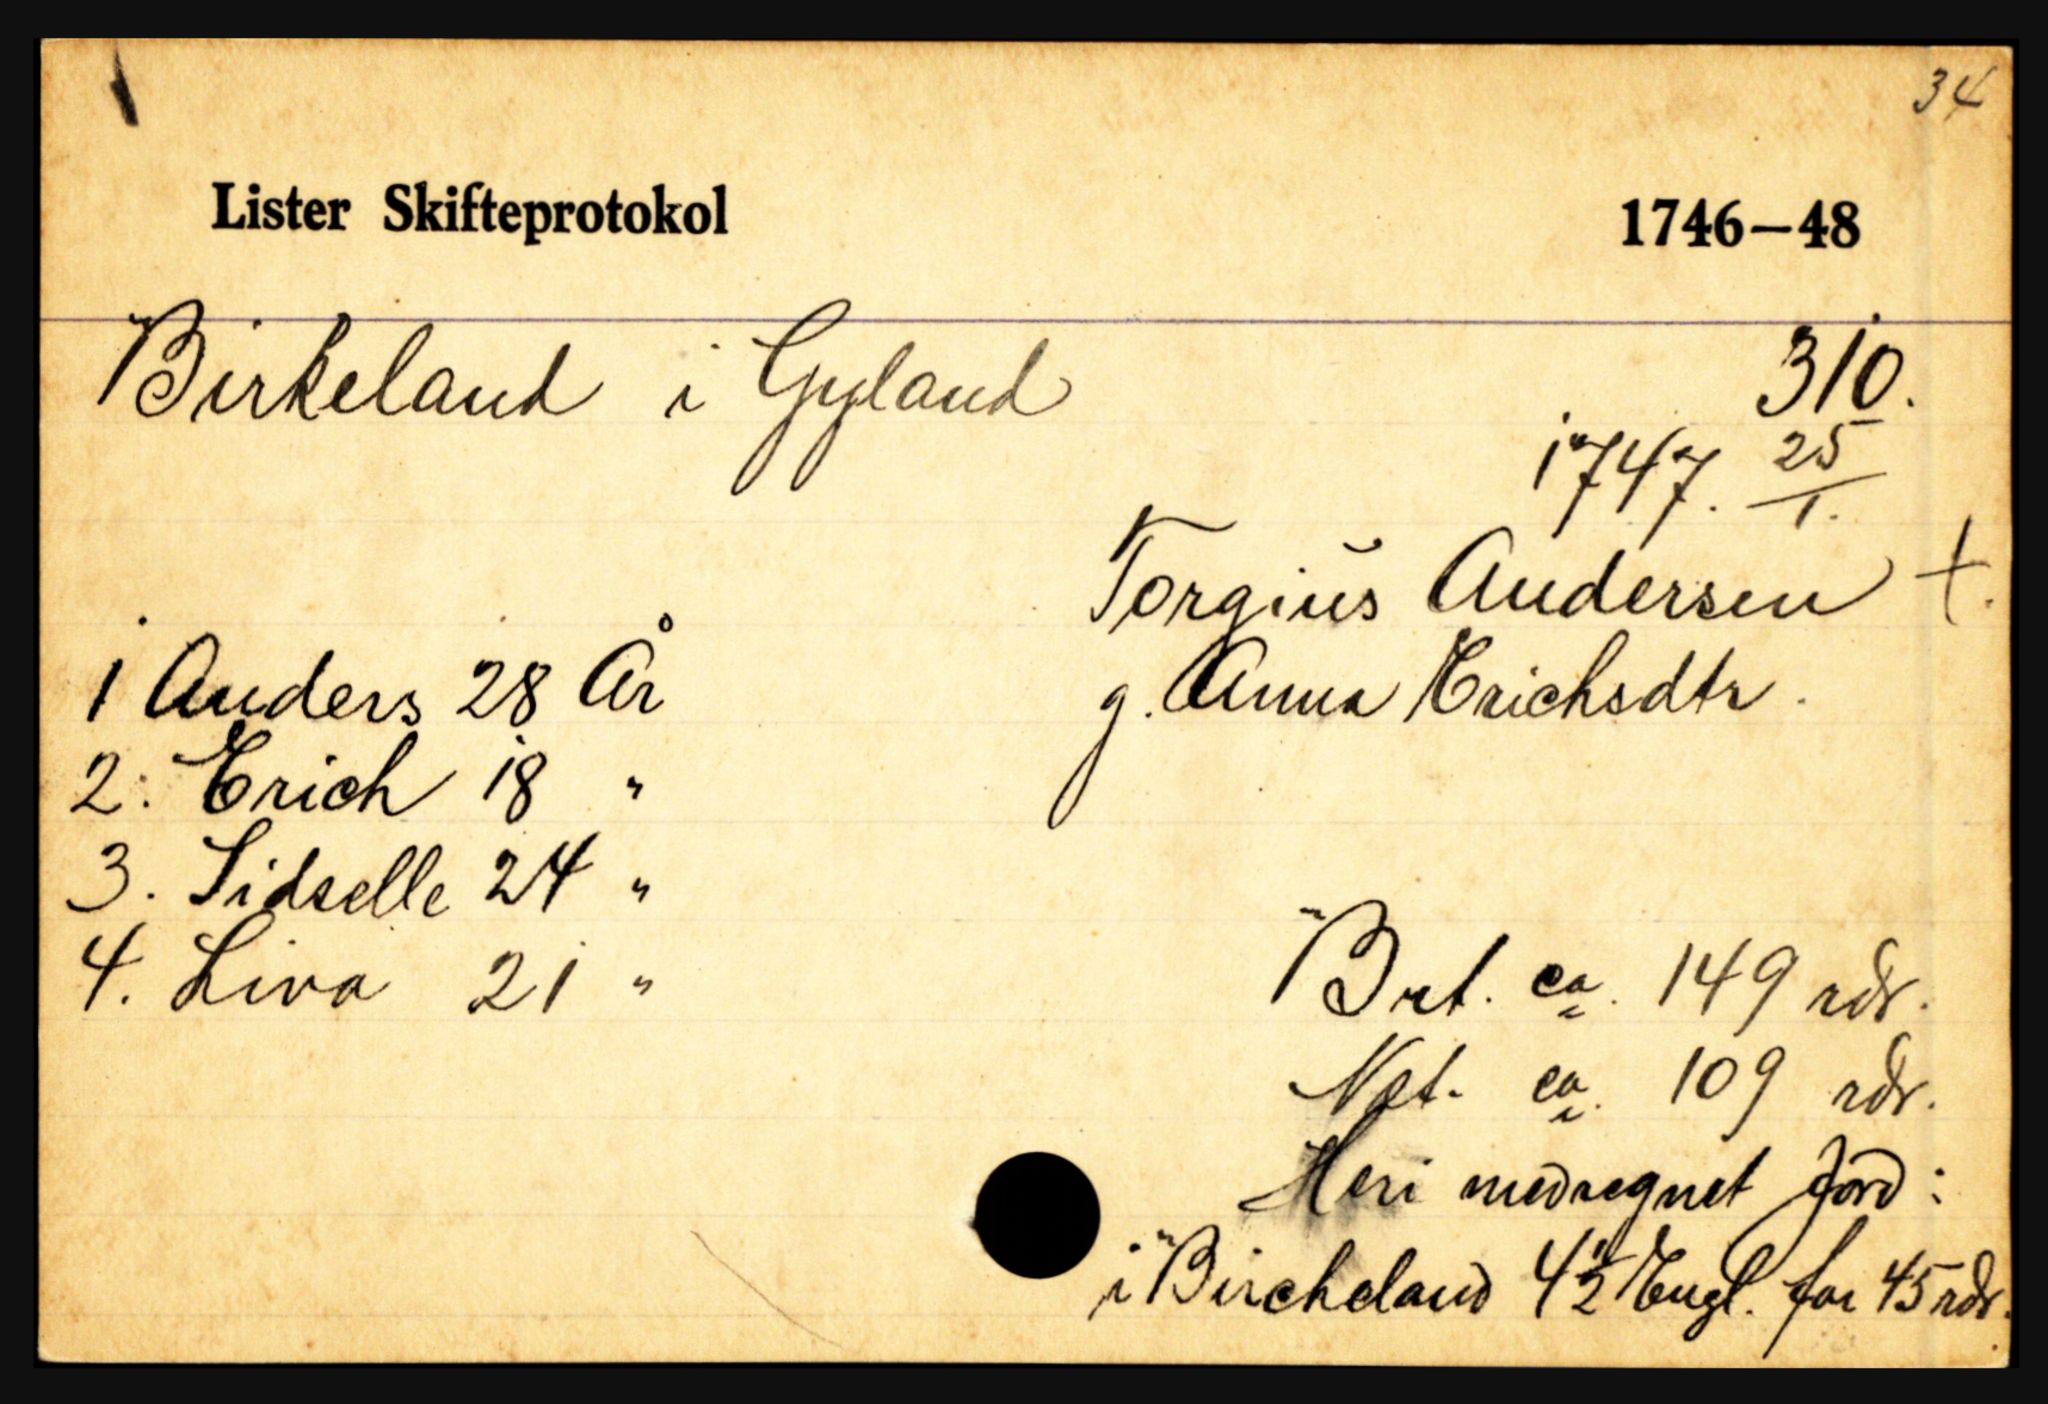 34
Lister Skifteprotokol 1746—48
Birkeland i Gyland 310.
1747. 25/1.
Torgius Andersen †.
g. Anna Erichsdtr.
1 Anders 28 År
2. Erich 18 "
3. Sidselle 24 "
4. Liva 21 "
Brt. ca. 149 rdr.
Net. ca. 109 rdr.
Heri medregnet Jord:
i Bircheland 4½ Engl. for 45 rdr.